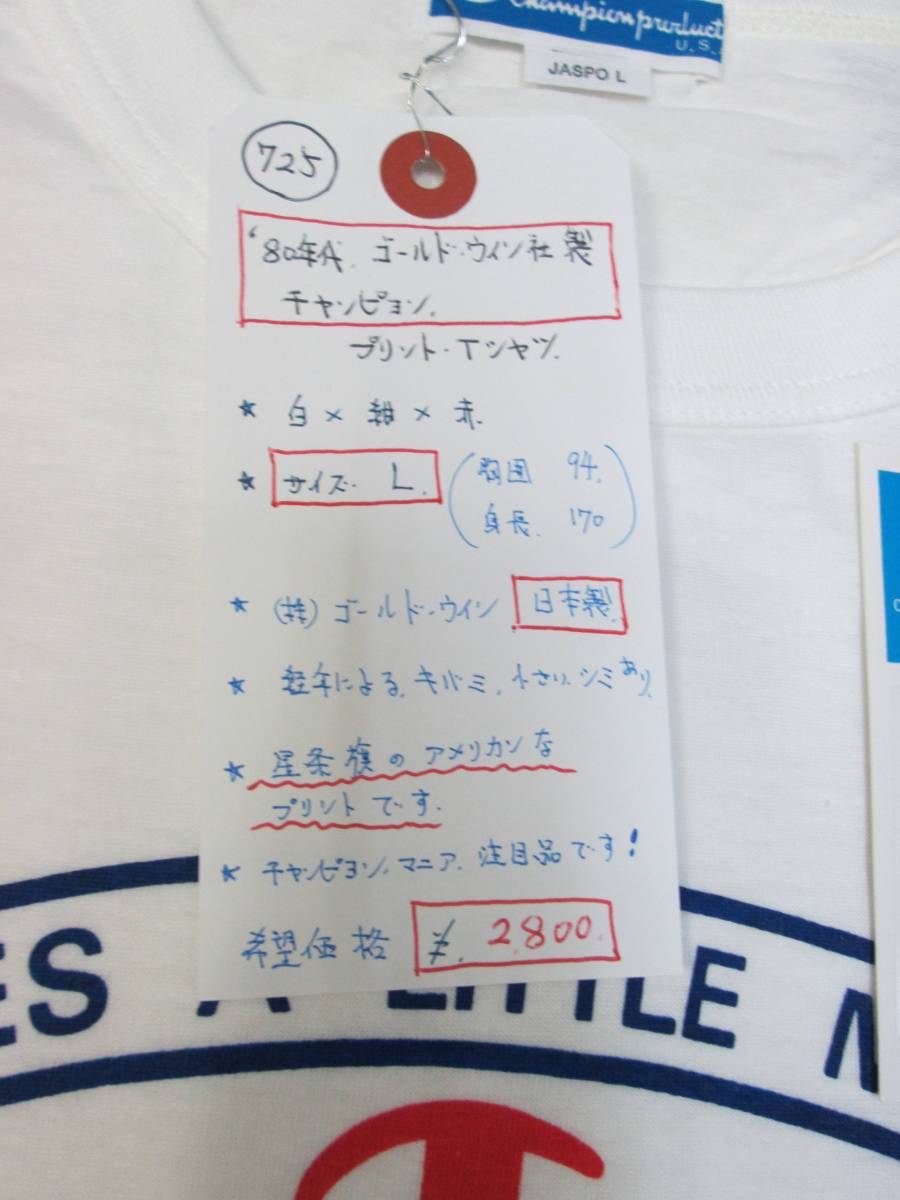 Champion product
U.S.
JASPO L
725
'80年代. ゴールド・ウィン社製
チャンピヨン.
プリント・Tシャツ.
★ 白×紺×赤.
★ サイズ. L. (胸囲 94.
身長. 170)
★ (株)ゴールド・ウイン 日本製.
★ 経年による.キバミ.小さいシミあり.
★ 星条旗のアメリカンな
プリントです.
★ チャンピヨン.マニア.注目品です!
希望価格 ¥. 2.800.
ES A LITTLE M